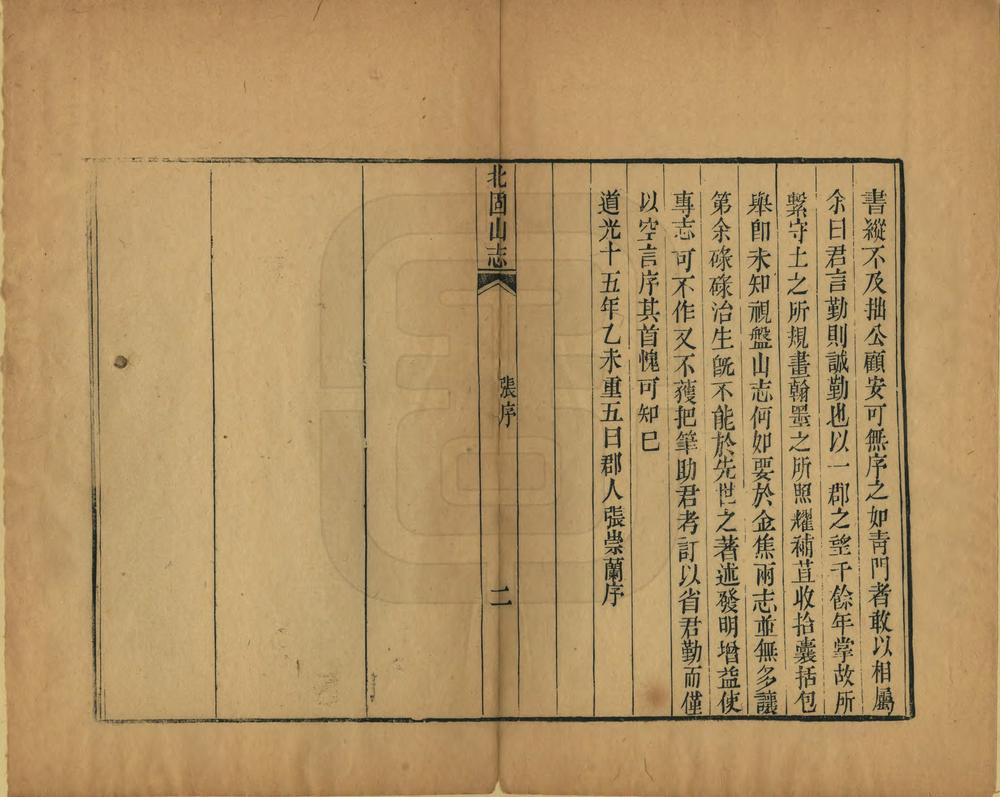 書縱不及拙公顧安可無序之如靑門者敢以相屬
余曰君言勤則誠勤也以一郡之望千餘年掌故所
繫守土之所規畫翰墨之所照耀補苴收拾囊括包
舉卽未知視盤山志何如要於金焦兩志並無多讓
第余碌碌治生旣不能於先世之著述發明增益使
專志可不作又不獲把筆助君考訂以省君勤而僅
以空言序其首愧可知巳
道光十五年乙未重五日郡人張崇蘭序
北固山志
張序
二